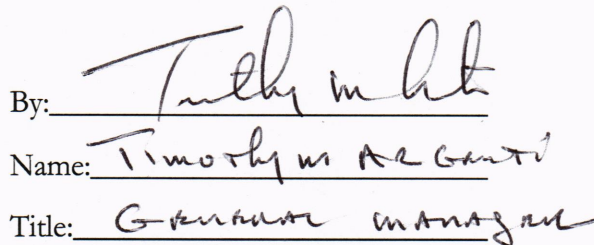 By: Timothy M
Name: Timothy M ARGENTI
Title: GENERAL MANAGER